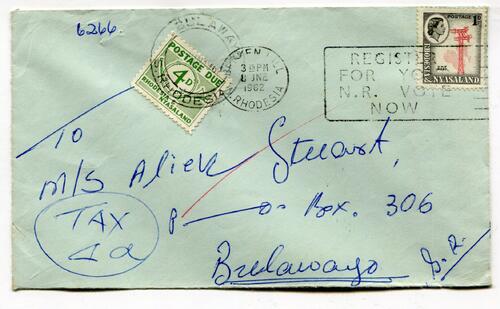 6266.
BULAWAYO
S. RHODESIA
POSTAGE DUE
4d
RHODESIA &
NYASALAND
3 30PM
8 JNE
1962
N. RHODESIA
REGISTER
FOR YOUR
N.R. VOTE
NOW
POSTAGE 1d
RHODESIA &
NYASALAND
To
M/S Aliek Stewart,
P — O — Box. 306
Bulawayo S.R.
TAX
4d